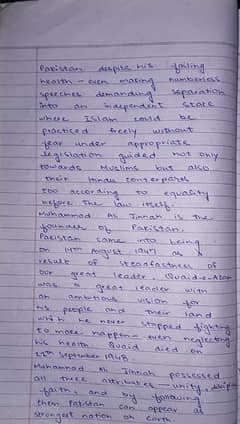 Pakistan despite his failing
health - even making numberless
speeches demanding separation
into an independent state
where Islam could be
practiced freely without
fear under appropriate
legislation guided not only
towards Muslims but also
their Hindu conterparts
too according to equality
before the law itself.
Muhammad Ali Jinnah is the
founder of Pakistan.
Pakistan came into being
on 14th August 1947 as a
result of steadfastness of
our great leader, Quaid-e-Azam
was a great leader with
an ambitious vision for
his people and their land
which he never stopped fighting
to make happen - even neglecting
his health Quaid died on
September 1948.
Muhammad Ali Jinnah possessed
all three attributes - unity,
faith, and by following
them Pakistan can appear as
strongest nation on earth.